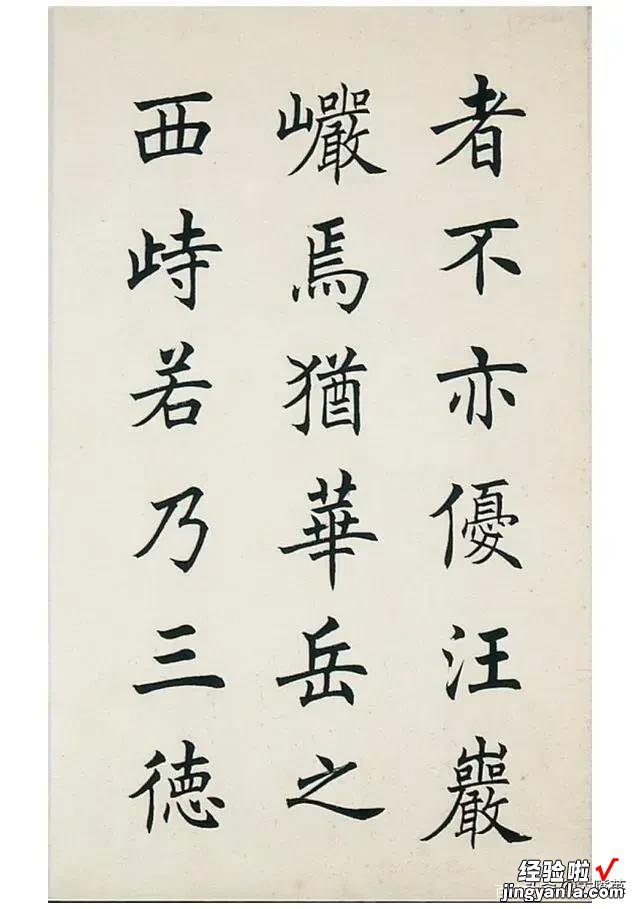 者不亦優汪巖
巗焉猶華岳之
西峙若乃三徳
经验啦√
jingyanla.com